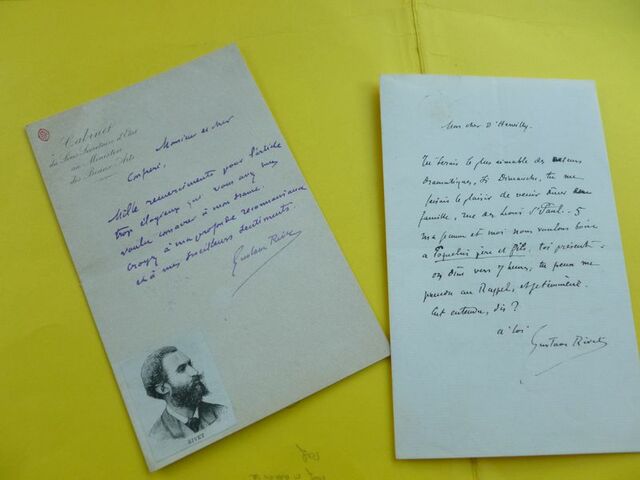 Cabinet
du Sous Secrétaire d'Etat
au Ministère
des Beaux-Arts
Monsieur et cher
Confrère,
Mille remerciements pour l'article
trop élogieux que vous avez bien
voulu consacrer à mon drame
croyez à ma profonde reconnaissance
et à mes meilleurs sentiments.
Gustave Rivet
RIVET
Mon cher d'Hervilly,
Tu serais le plus aimable des
dramatiques, si Dimanche, tu me
faisais le plaisir de venir dîner en
famille, rue des Lions St Paul. 5
ma femme et moi nous voulons boire
à Poquelin père et fils, toi présent.
on dîne vers 7 heures, tu peux me
prendre au Rappel, et je t'emmène.
C'est entendu, dis ?
à toi
Gustave Rivet